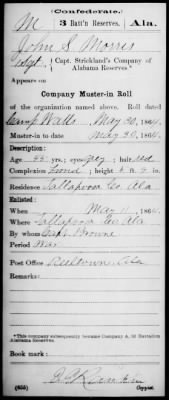 (Confederate.)
M 3 Batt'n Reserves, Ala.
John S. Morris
Sgt., Capt. Strickland's Company of
Alabama Reserves*
Appears on
Company Muster-in Roll
of the organization named above. Roll dated
Camp Watts May 30, 1864.
Muster-in to date May 30, 1864.
Description:
Age 46 yrs.; eyes grey, hair red
Complexion ; height 5 ft. 9 in.
Residence Tallapoosa Co. Ala
Enlisted:
When May 11, 1864.
Where Tallapoosa Co. Ala
By whom Capt. Browne
Period War
Post Office Reeltown, Ala
Remarks:
*This company subsequently became Company A, 3d Battalion
Alabama Reserves.
Book mark:
(655) Copyist.